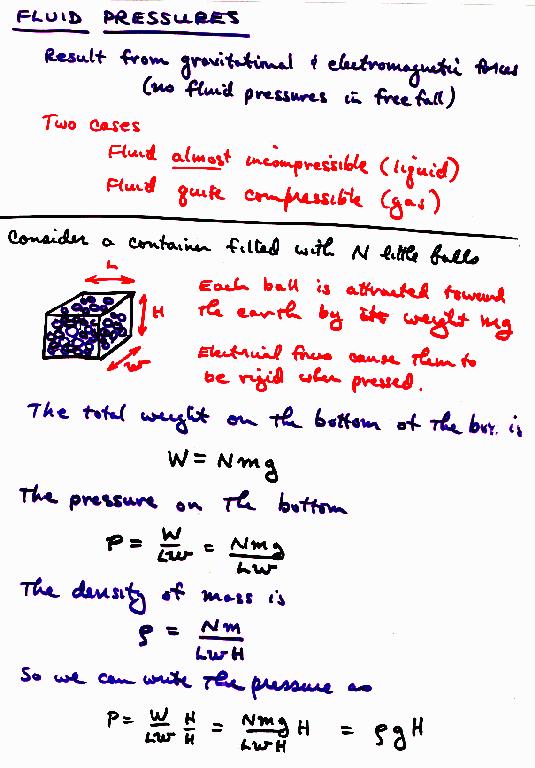 FLUID PRESSURES
Result from gravitational & electromagnetic forces
(no fluid pressures in free fall)
Two cases
Fluid almost incompressible (liquid)
Fluid quite compressible (gas)
Consider a container filled with N little balls
L
H
W
Each ball is attracted toward
the earth by its weight mg
Electrical forces cause them to
be rigid when pressed.
The total weight on the bottom of the box is
W = Nmg
The pressure on the bottom
P = W/LW = Nmg/LW
The density of mass is
ρ = Nm/LWH
So we can write the pressure as
P = W/LW H/H = Nmg/LWH H = ρgH